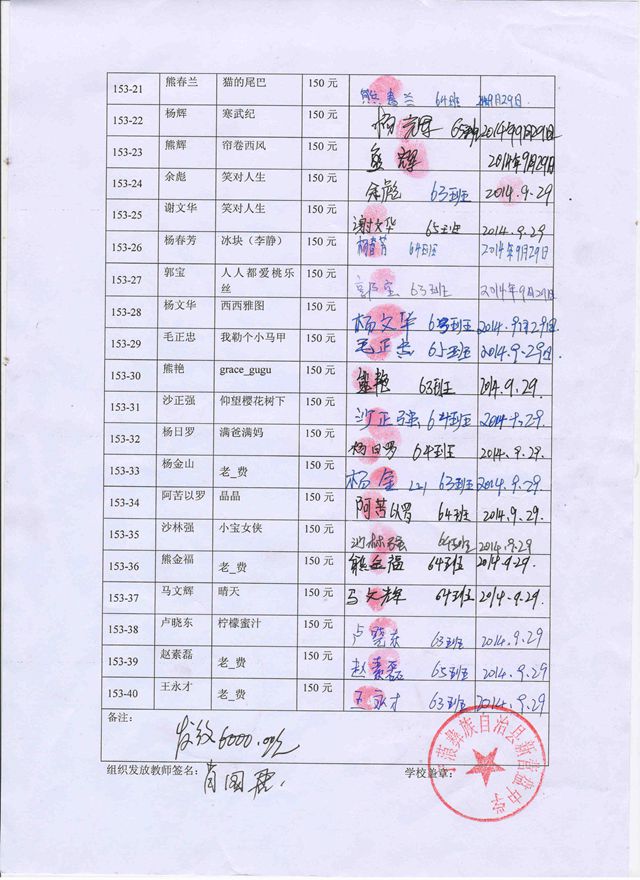 153-21 熊春兰 猫的尾巴 150 元 熊春兰 64班 9月29日
153-22 杨辉 寒武纪 150 元 杨 2014年9月29日
153-23 熊辉 帘卷西风 150 元 熊辉 2014年9月29日
153-24 余彪 笑对人生 150 元 余彪 63班 2014.9.29
153-25 谢文华 笑对人生 150 元 谢文华 65班 2014.9.29
153-26 杨春芳 冰块（李静） 150 元 杨春芳 64班 2014年9月29日
153-27 郭宝 人人都爱桃乐
丝 150 元 郭宝 63班 2014年9月29日
153-28 杨文华 西西雅图 150 元 杨文华 63班 2014.9月29日
153-29 毛正忠 我勒个小马甲 150 元 毛正忠 65班 2014.9.29
153-30 熊艳 grace_gugu 150 元 熊艳 63班 2014.9.29.
153-31 沙正强 仰望樱花树下 150 元 沙正强 64班 2014.9.29
153-32 杨日罗 满爸满妈 150 元 杨日罗 64班 2014.9.29.
153-33 杨金山 老_费 150 元 杨金山 63班 2014.9.29.
153-34 阿苦以罗 晶晶 150 元 阿苦以罗 64班 2014.9.29.
153-35 沙林强 小宝女侠 150 元 沙林强 64班 2014.9.29
153-36 熊金福 老_费 150 元 熊金福 64班 2014.9.29.
153-37 马文辉 晴天 150 元 马文辉 64班 2014.9.29.
153-38 卢晓东 柠檬蜜汁 150 元 卢晓东 63班 2014.9.29
153-39 赵素磊 老_费 150 元 赵素磊 65班 2014.9.29
153-40 王永才 老_费 150 元 王永才 63班 2014.9.29
备注：
发放6000.00元
组织发放教师签名： 肖国 学校盖章：
蒗彝族自治县新营盘中学